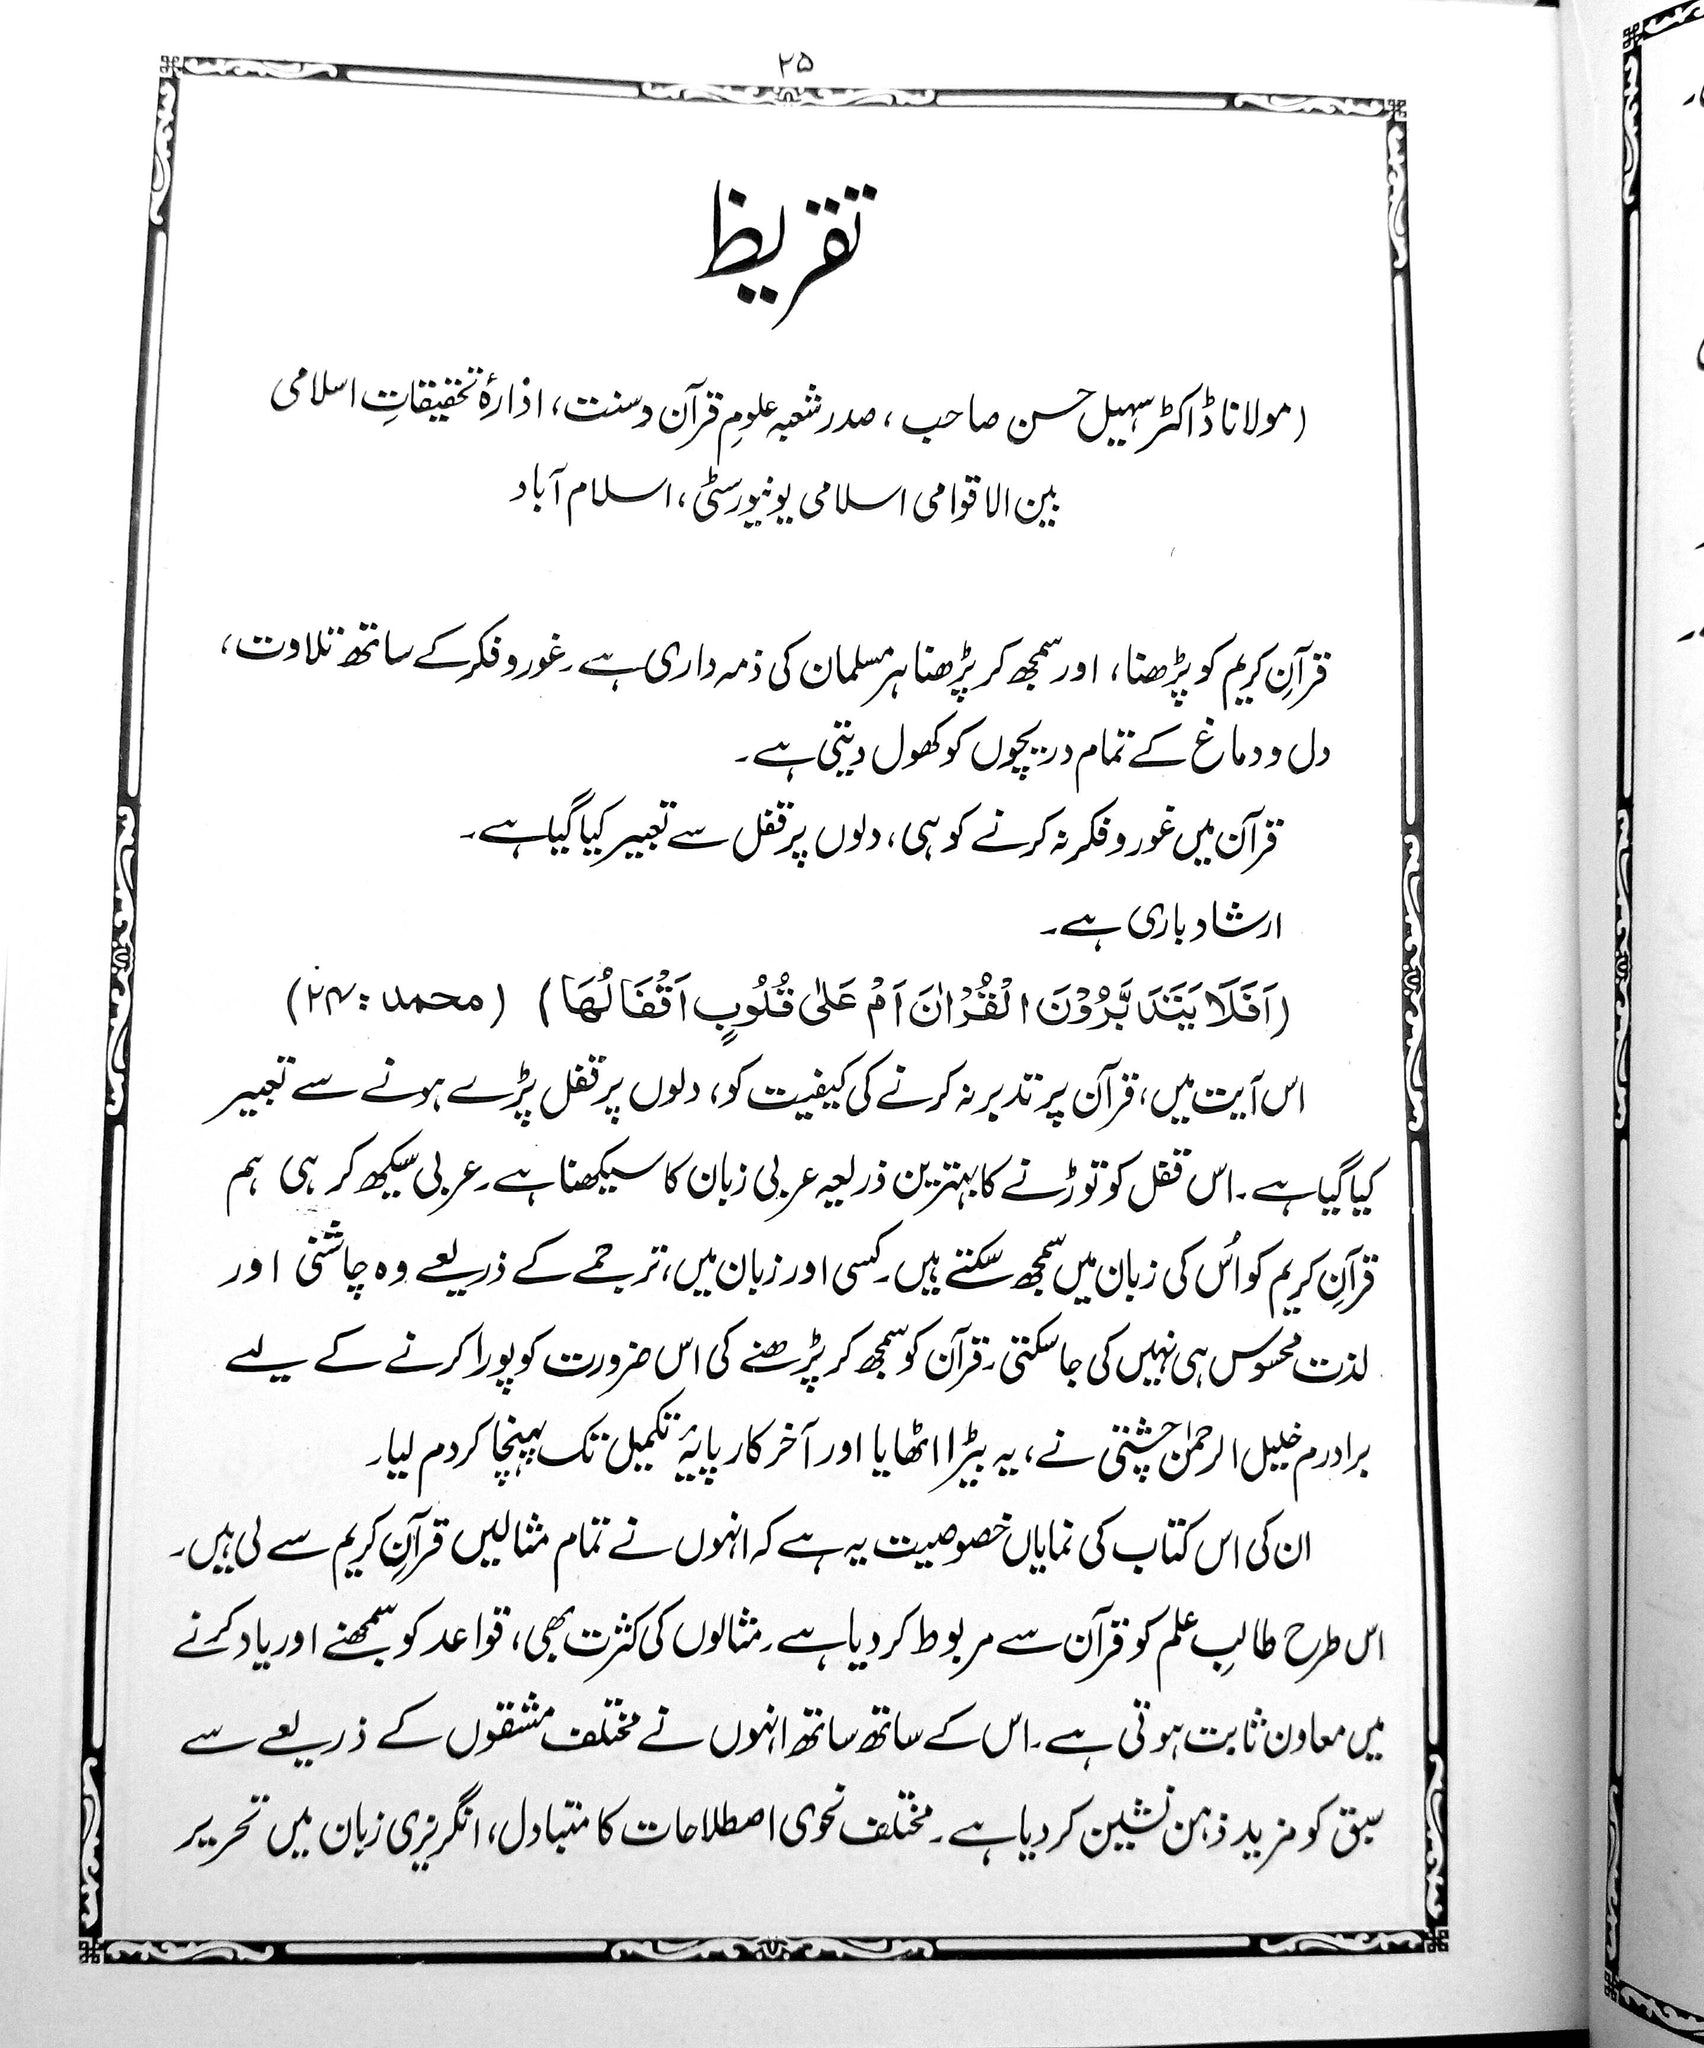 ۲۵
تقریظ
(مولانا ڈاکٹر سہیل حسن صاحب، صدر شعبہ علومِ قرآن و سنت، ادارۂ تحقیقاتِ اسلامی
بین الاقوامی اسلامی یونیورسٹی، اسلام آباد
قرآنِ کریم کو پڑھنا، اور سمجھ کر پڑھنا ہر مسلمان کی ذمہ داری ہے۔ غور و فکر کے ساتھ تلاوت،
دل و دماغ کے تمام دریچوں کو کھول دیتی ہے۔
قرآن میں غور و فکر نہ کرنے کو ہی، دلوں پر قفل سے تعبیر کیا گیا ہے۔
ارشاد باری ہے۔
(اَفَلَا یَتَدَبَّرُوْنَ الْقُرْاٰنَ اَمْ عَلٰی قُلُوْبٍ اَقْفَالُهَا) (محمد: ۲۴)
اس آیت میں، قرآن پر تدبر نہ کرنے کی کیفیت کو، دلوں پر قفل پڑے ہونے سے تعبیر
کیا گیا ہے۔ اس قفل کو توڑنے کا بہترین ذریعہ عربی زبان کا سیکھنا ہے۔ عربی سیکھ کر ہی ہم
قرآنِ کریم کو اُس کی زبان میں سمجھ سکتے ہیں۔ کسی اور زبان میں، ترجمے کے ذریعے وہ چاشنی اور
لذت محسوس ہی نہیں کی جا سکتی۔ قرآن کو سمجھ کر پڑھنے کی اس ضرورت کو پورا کرنے کے لیے
برادرم خلیل الرحمٰن چشتی نے، یہ بیڑا اٹھایا اور آخر کار پایۂ تکمیل تک پہنچا کر دم لیا۔
ان کی اس کتاب کی نمایاں خصوصیت یہ ہے کہ انہوں نے تمام مثالیں قرآنِ کریم سے لی ہیں۔
اس طرح طالبِ علم کو قرآن سے مربوط کر دیا ہے۔ مثالوں کی کثرت بھی، قواعد کو سمجھنے اور یاد کرنے
میں معاون ثابت ہوتی ہے۔ اس کے ساتھ ساتھ انہوں نے مختلف مشقوں کے ذریعے سے
سبق کو مزید ذہن نشین کر دیا ہے۔ مختلف نحوی اصطلاحات کا متبادل، انگریزی زبان میں تحریر